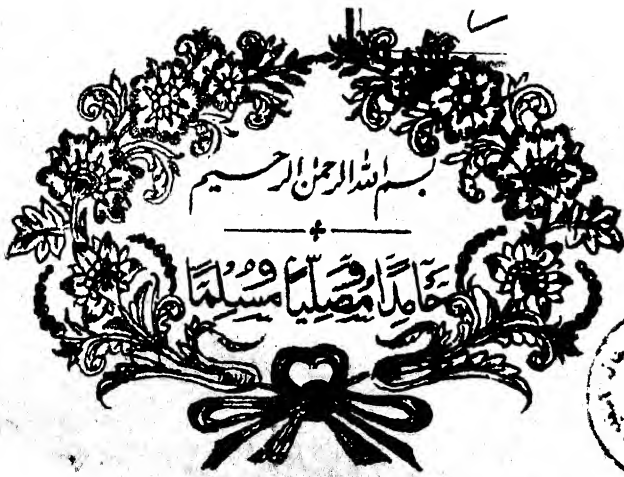 بسم الله الرحمن الرحیم
حَامِدًا وَّمُصَلِّیًا وَّمُسَلِّمًا